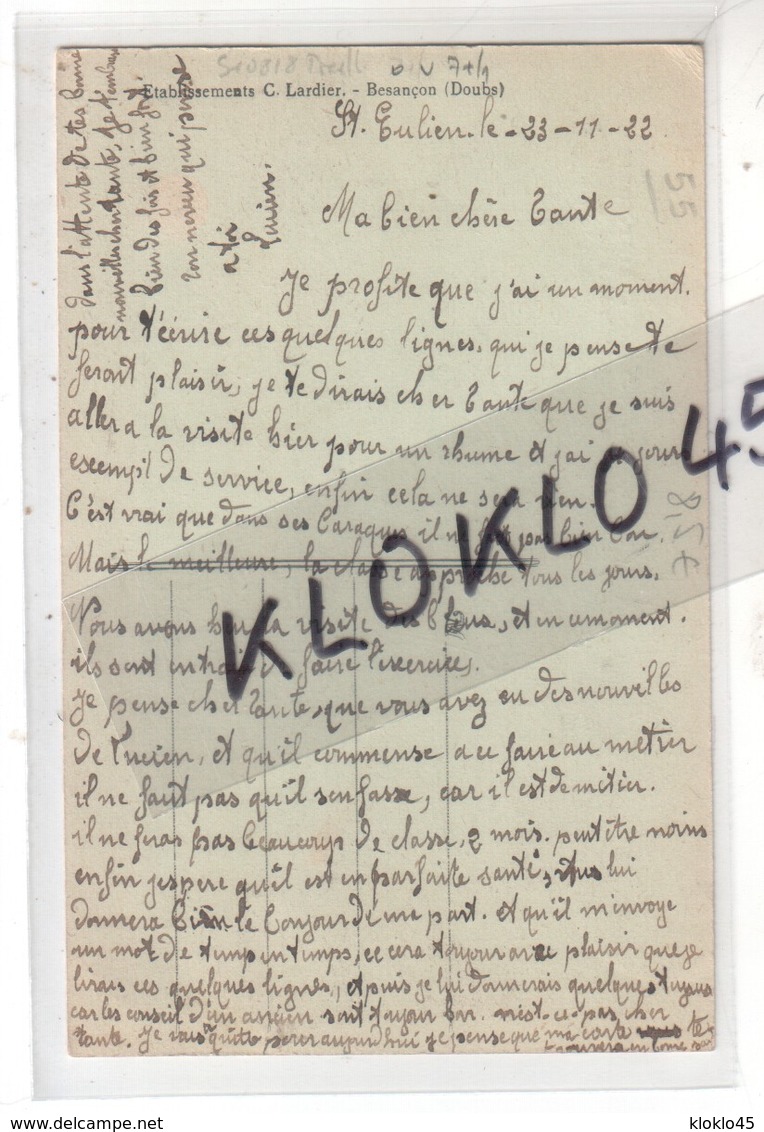 Etablissements C. Lardier. - Besançon (Doubs)
St. Eulien. le - 23 - 11 - 22
Ma bien chère Tante
Je profite que j'ai un moment.
pour t'écrire ces quelques lignes, qui je pense te
feront plaisir, je te dirais cher Tante que je suis
aller a la visite hier pour un rhume et j'ai jour
exempt de service, enfin cela ne sera rien.
C'est vrai que dans ses Baraques il ne fait pas bien bon.
Mais le meilleure, la classe approche tous les jours.
Nous avons la visite des bleus, et en ce moment.
ils sont entrain faire l'exercice.
Je pense cher Tante, que vous avez eu des nouvelles
de Lucien, et qu'il commense a ce faire au métier
il ne faut pas qu'il s'en fasse, car il est de métier.
il ne feras pas beaucoup de classe, 2 mois. peut être moins
enfin j'espere qu'il est en parfaite santé, lui
donnera bien le bonjour de me part. et qu'il m'envoye
un mot de temp en temps, ce cera toujour avec plaisir que je
lirais ces quelques lignes, et puis je lui donnerais quelques tuyaux
car les conseil d'un ancien sont toujour bon. n'est-ce-pas cher
tante. Je vais quitte pour aujourd'hui je pense que ma carte te
trouvera en bonne
dans l'attente de tes bonne
nouvelles cher tante, je t'embrasse
bien des fois et bien fort.
ton neveu qui pense
a toi
Lucien.
KLOKLO 45
55
kloklo45